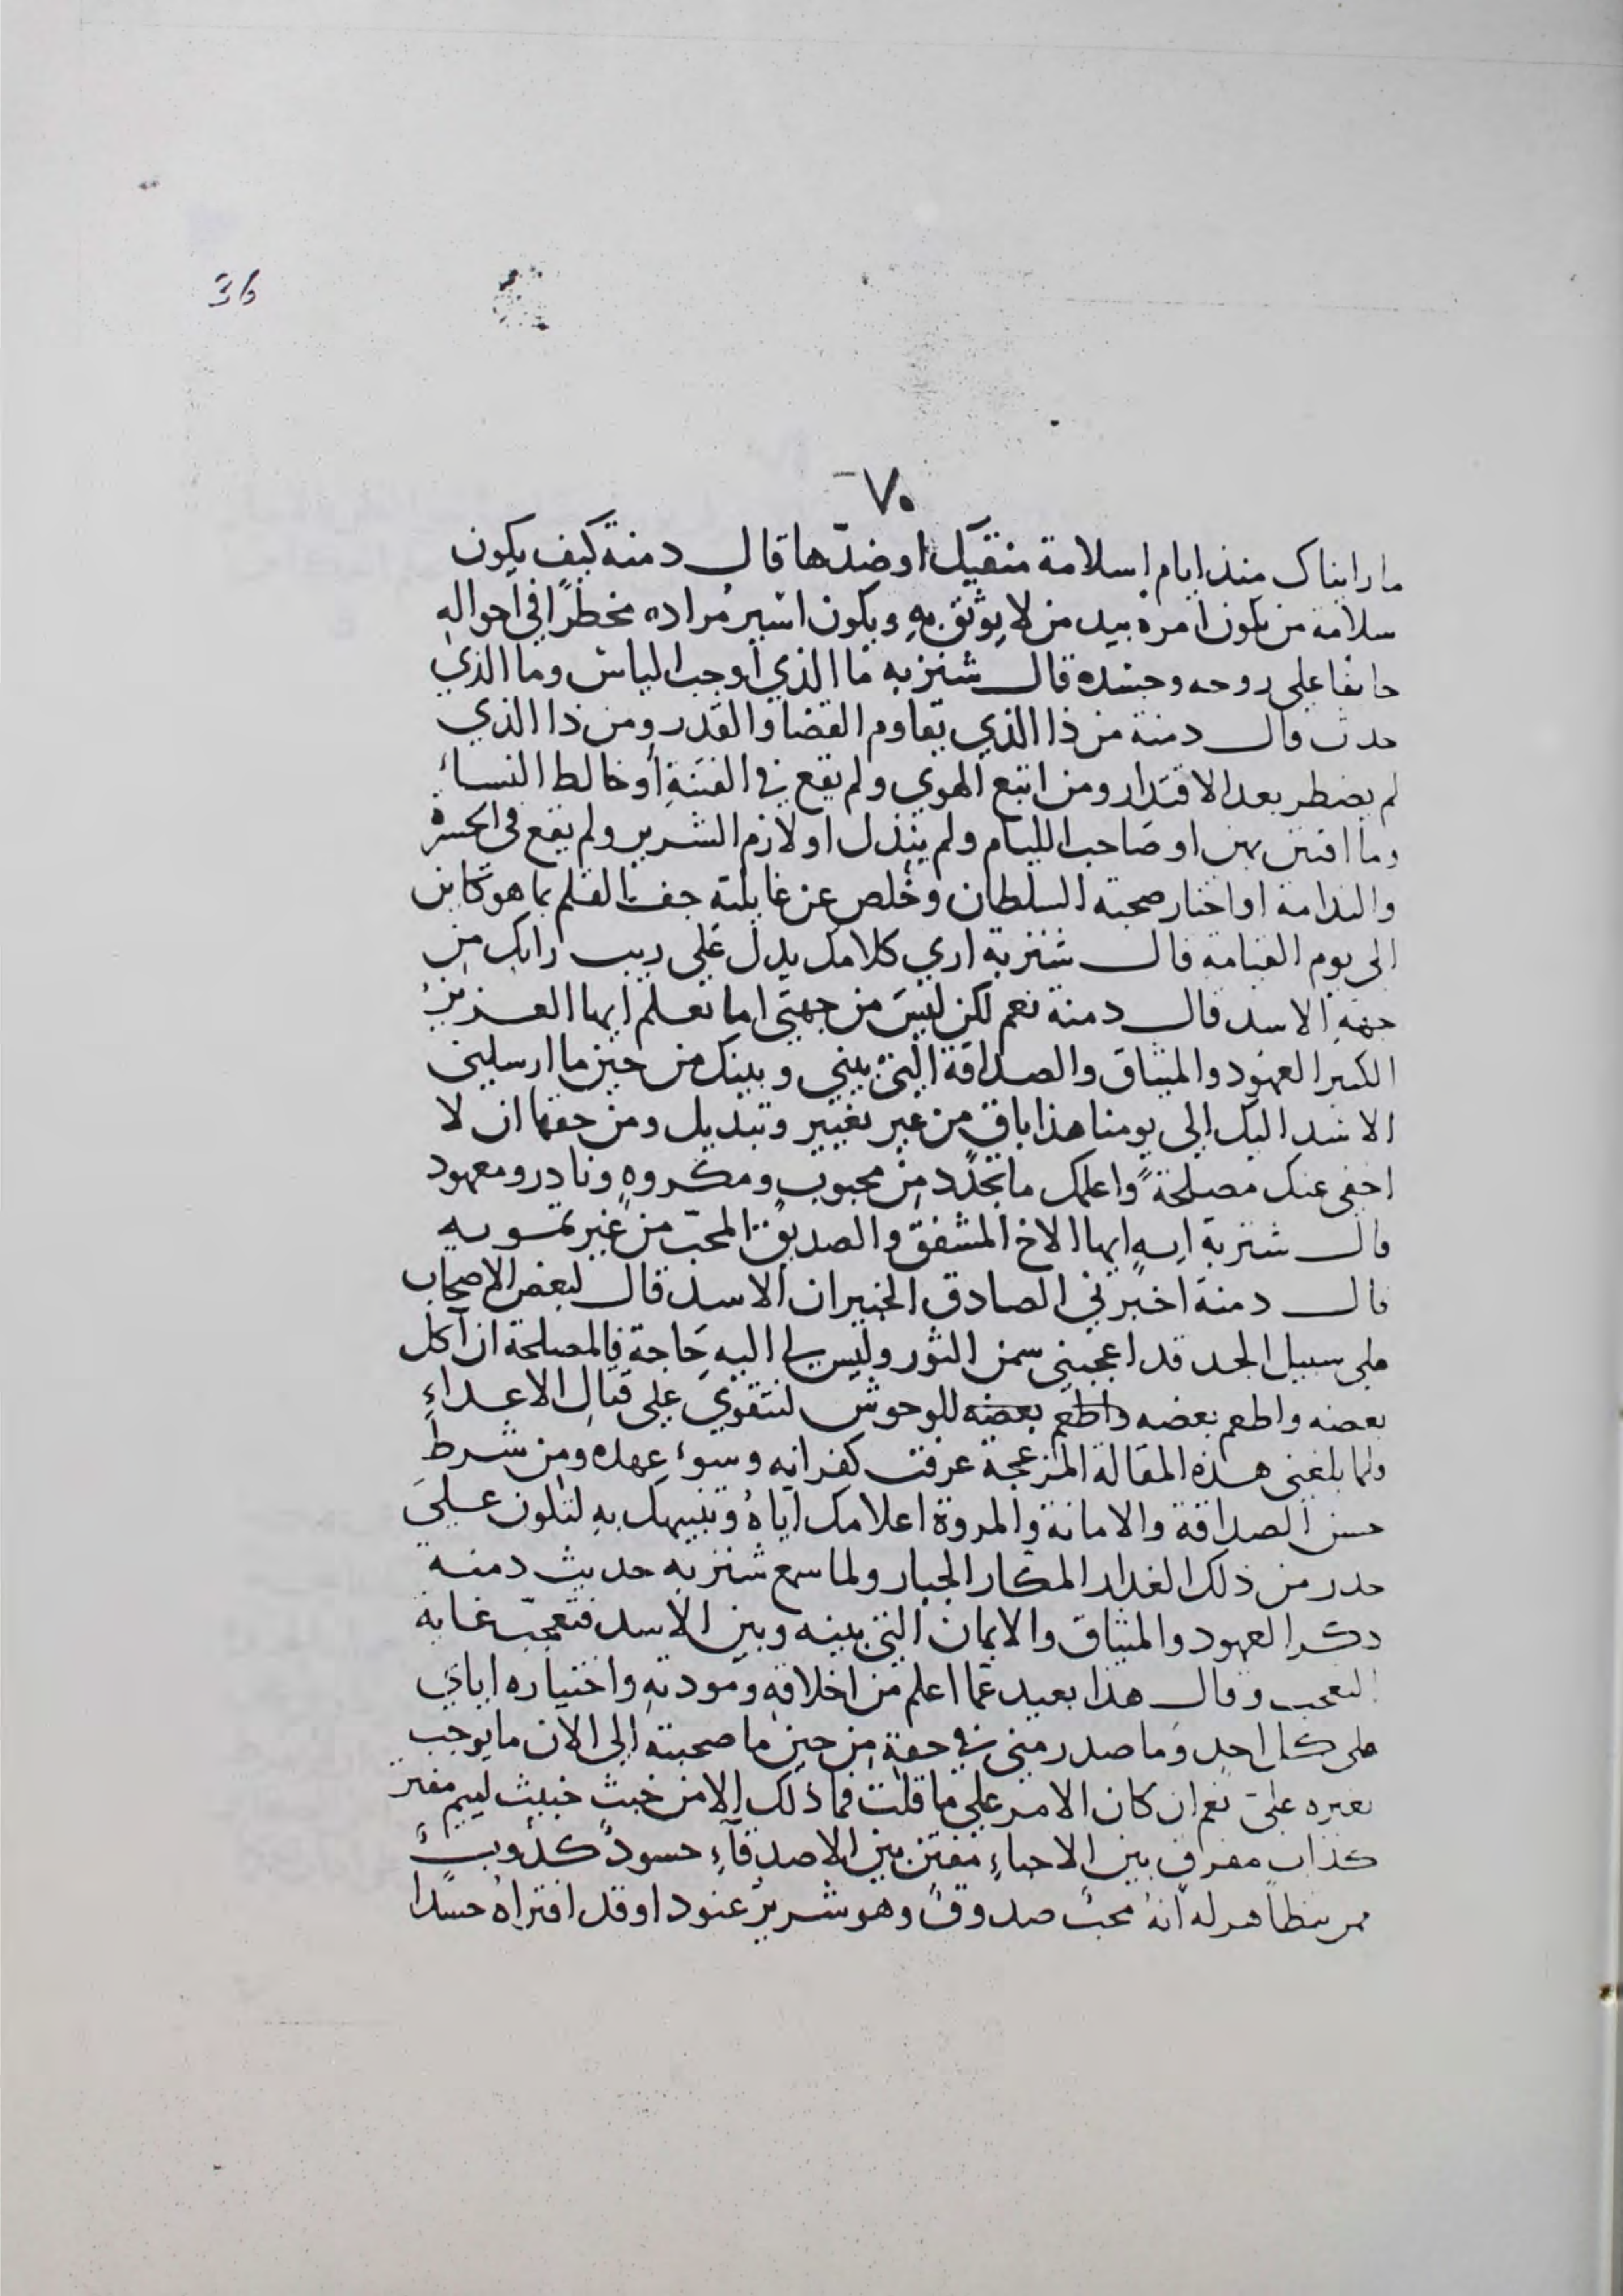 36
٧٠
ما رايناك منذ ايام اسلامة منقبك او ضدّها قال دمنة كيف يكون
سلامة من يكون امره بيد من لا يوثق به ويكون اسير مراده مخطرًا في احواله
خايفا على روحه وجسده قال شنزبه ما الذي اوجب الياس وما الذي
حدث قال دمنة من ذا الذي يقاوم القضا والقدر ومن ذا الذي
لم يضطر بعد الاقتدار ومن اتبع الهوي ولم يقع في الفتنة او خالط النساء
وما افتتن بهن او صاحب الليام ولم يتذلل او لازم الشرير ولم يقع في الحسرة
والندامة او اختار صحبة السلطان وخلص عن غايلته جف القلم بما هو كاين
الى يوم القيامه قال شنزبة اري كلامك يدل على ريب رابك من
جهة الاسد قال دمنة نعم لكن ليس من جهتي اما تعلم ايها العزيز
الكبير العهود والميثاق والصداقة التي بيني وبينك من حين ما ارسليني
الاسد اليك الى يومنا هذا باق من غير تغيير وتبديل ومن حقها ان لا
اخفي عنك مصلحةً واعلمك ما تجدّد من محبوب ومكروه ونادر ومعهود
قال شنزبة ايه ايها الاخ المشفق والصديق المحبّ من غير تمويه
قال دمنة اخبرني الصادق الخبير ان الاسد قال لبعض الاصحاب
على سبيل الجد قد اعجبني سمن الثور وليس لي اليه حاجة فالمصلحة ان آكل
بعضه واطعم بعضه واطعم بعضه للوحوش لنتقوي على قتال الاعداءِ
ولما بلغني هذه المقالة المزعجة عرفت كفرانه وسوء عهده ومن شرط
حسن الصداقة والامانة والمروة اعلامك اياهُ وتنبيهك به لتكون على
حذر من ذلك الغدار المكار الجبار ولما سمع شنزبه حديث دمنه
ذكر العهود والميثاق والايمان التي بينه وبين الاسد فتعجّب غاية
التعجب وقال هذا بعيد عمّا اعلم من اخلاقه ومودته واختياره اياي
على كل احد وما صدر مني في حقه من حين ما صحبته الى الان ما يوجب
تغيره علىّ نعم ان كان الامر على ما قلت فما ذلك الا من خبث خبيث لييم مفتر
كذاب مفرق بين الاحباءِ مفتن بين الاصدقآءِ حسودٌ كذوبٌ
ممن يتظاهر له انهُ محبٌ صدوقٌ وهو شريرٌ عنود او قد افتراهُ حسدًا